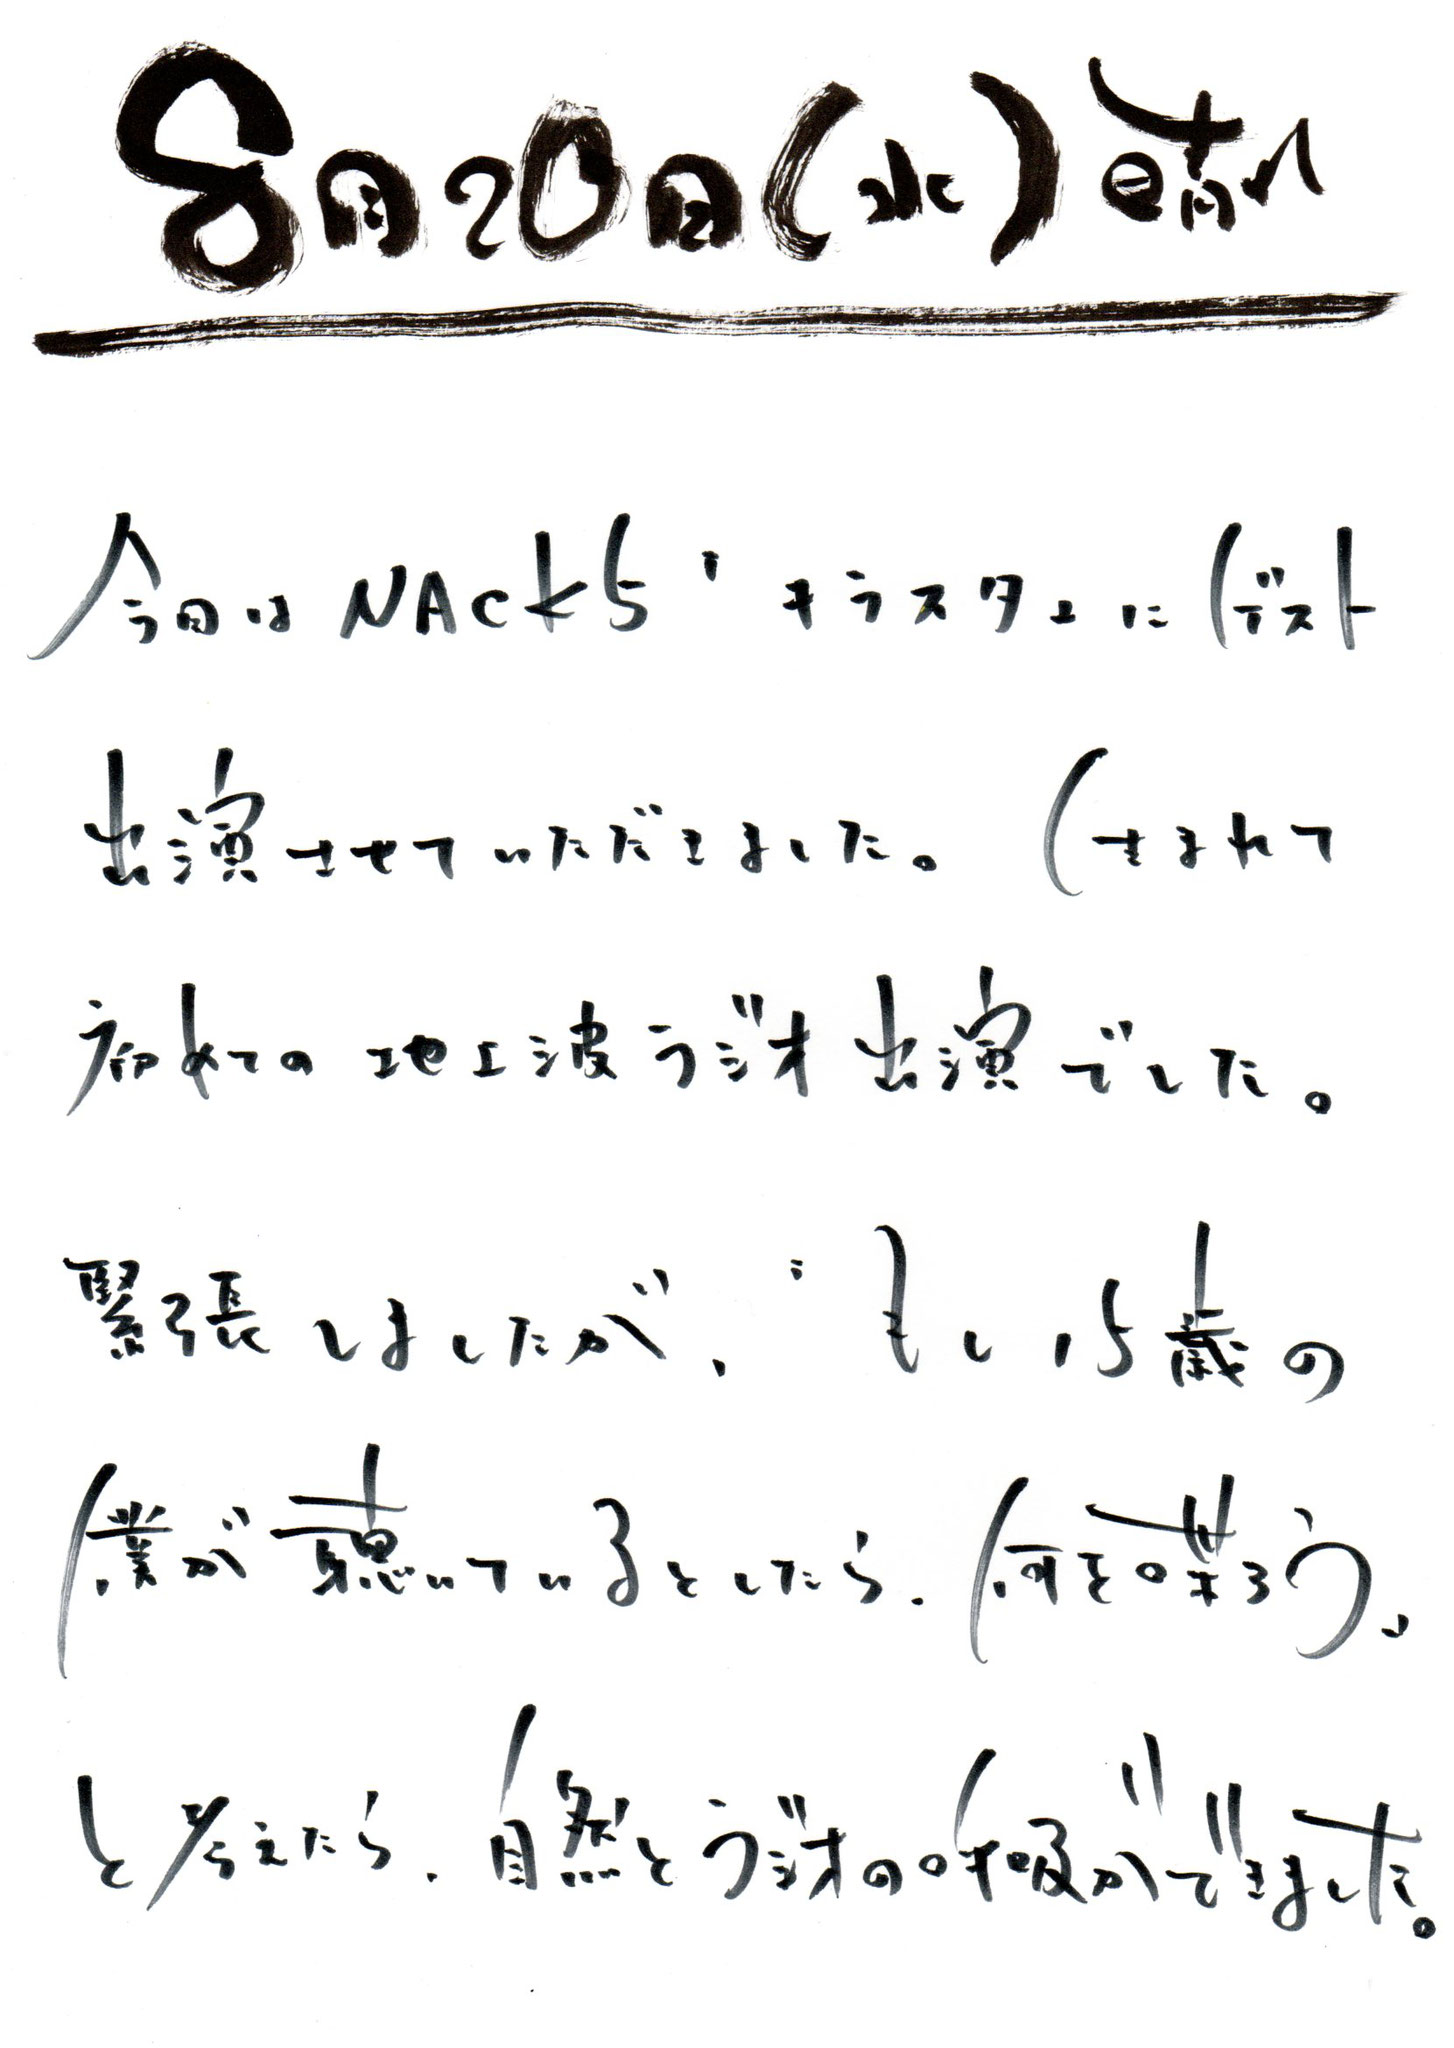 8月20日(水)晴れ
今日はNACK5「キラスタ」にゲスト
出演させていただきました。生まれて
初めての地上波ラジオ出演でした。
緊張しましたが、「もし15歳の
僕が聴いているとしたら、何を喋ろう」
と考えたら、自然とラジオの呼吸ができました。